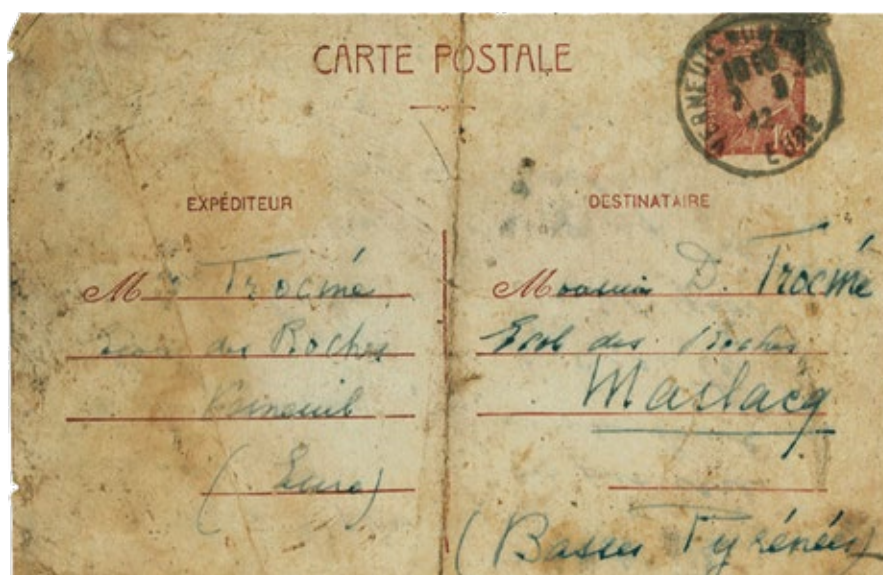 CARTE POSTALE
VERNEUIL
42
EURE
EXPÉDITEUR
M Trocmé
École des Roches
Verneuil
(Eure)
DESTINATAIRE
Monsieur D. Trocmé
Ecole des Roches
Maslacq
(Basses Pyrénées)